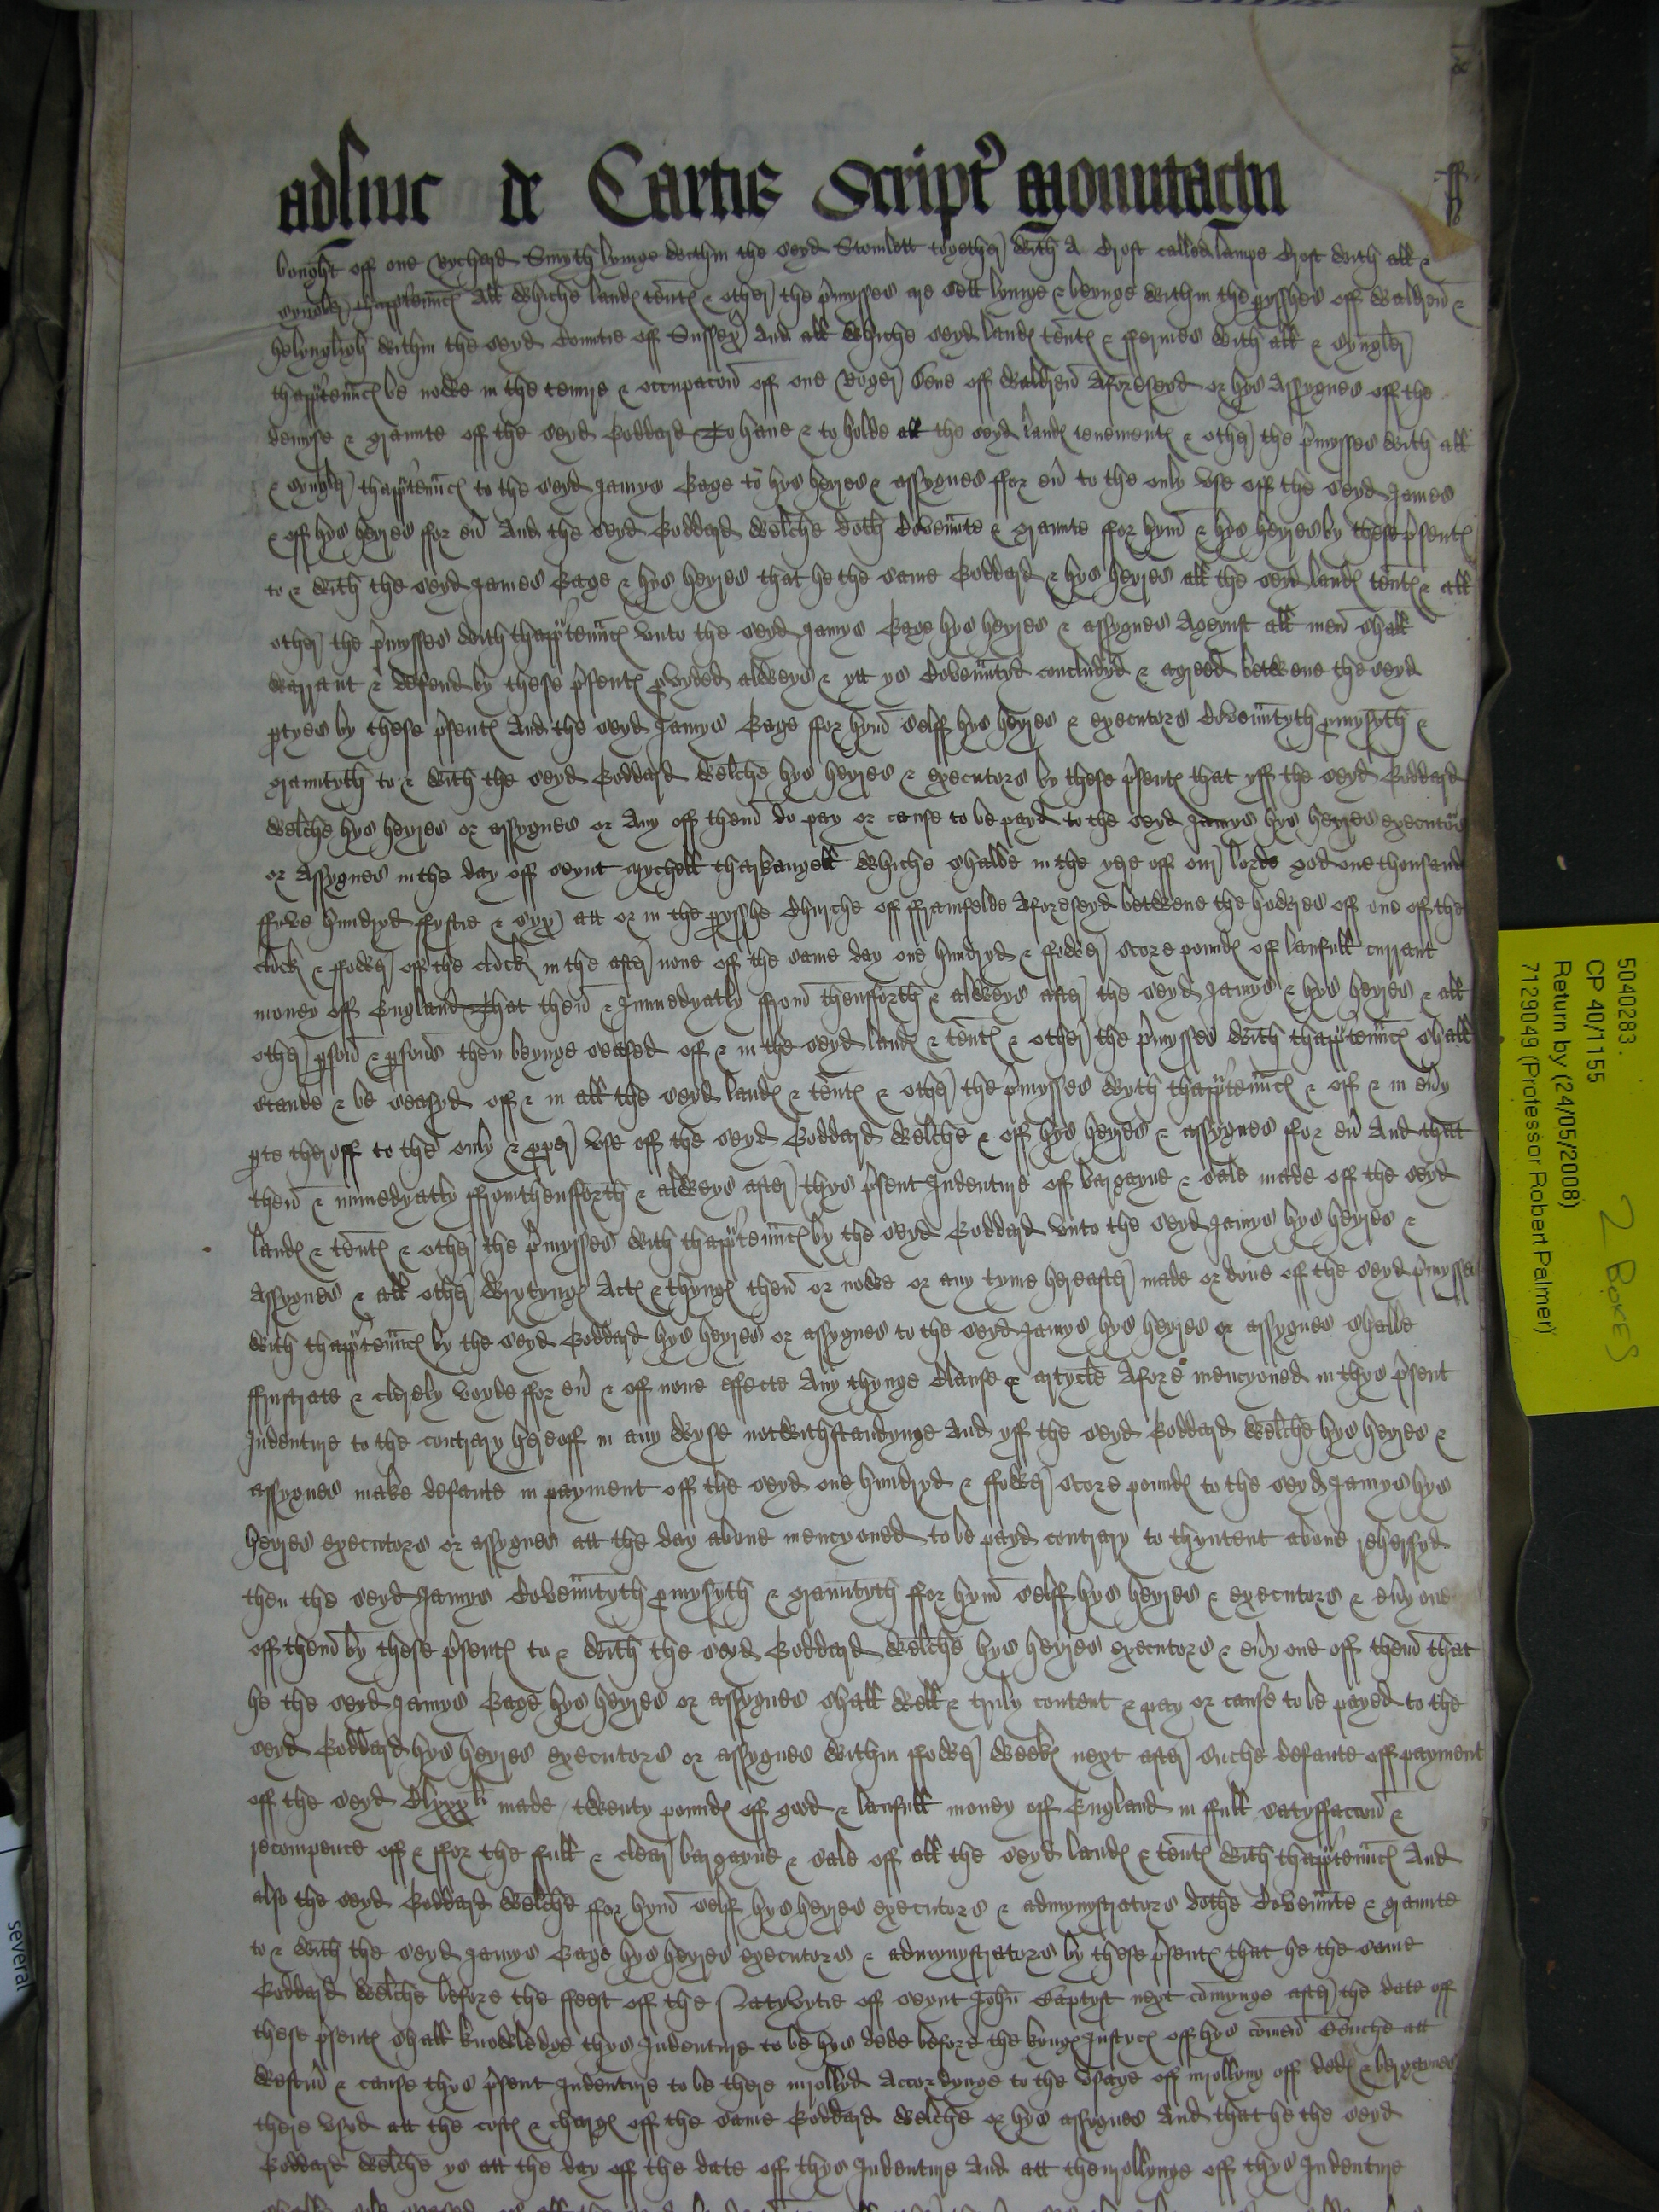 adhuc de Cartis Script' Mountagu
bought off one Rychard Smyth lyinge within the seyd Stomlett together with A Croft called lampe Croft with all &
synguler thappurtennc All whiche land tent & other the p'mysses are sett lyinge & beynge within the pysshes off Waldren &
helynglygh within the seyd Countie off Sussex And all whiche seyd land tent & ffermes with all & synguler
thapp'tennc be nowe in the tenure & occupacon off one Roger Gene off Waldren Aforeseyd or hys Assygnes off the
demyse & graunte off the seyd Goddard To have & to holde all the seyd land tenement & other the p'mysses with all
& syngler thapp'tennc to the seyd Jamys Gage to hys heyres & assygnes ffor eu' to the only vse off the seyd James
& off hys heyres ffor eu' And the seyd Goddard Welche doth Covennte & graunte ffor hym & hys heyres by these p'sent
to & with the seyd James Gage & hys heyres that he the same Goddard & hys heyres all the seyd land tent & all
other the p'mysses with thapp'tennc vnto the seyd Jamys Gage hys heyres & assygnes Ageynst all men shall
warrant & defend by these p'sent p'vyded alweys & ytt ys Covenntyd concludyd & agreed betwene the seyd
ptyes by these p'sent And the seyd Jamys Gage ffor hym selff hys heyres & executors Covenntyth p'mysyth &
grauntyth to & with the seyd Goddard Welche hys heyres & executors by these p'sent that yff the seyd Goddard
Welche hys heyres or assygnes or Any off them do pay or cause to be payd to the seyd Jamys hys heyres executors
or Assygnes in the day off seynt Mychell tharkangell whiche shalbe in the yere off our lorde god one thousand
ffyve hundryd ffyftie & syx att or in the pysshe Churche off fframfelde Aforeseyd betwene the howres off one off the
clock & ffower off the clock in the after none off the same day one hundryd & ffower score pound off laufull currant
money off England That then & Immedyatly ffrom thensforth & alweys after the seyd Jamys & hys heyres & all
other pson & psons then beynge seased off & in the seyd land & tent & other the p'mysses with thapp'tennc shall
stande & be seasyd off & in all the seyd land & tent & other the p'mysses wyth thapp'tennc & off & in eu'y
pte theroff to the only & pper vse off the seyd Goddard Welche & off hys heyres & assygnes ffor eu' And that
then & immedyatly ffromthensfforth & alweys after thys p'sent Indenture off bargayne & sale made off the seyd
land & tent & other the p'mysses with thapp'tennc by the seyd Goddard vnto the seyd Jamys hys heyres &
Assygnes & all other wrytyng Act & thyng then or nowe or any tyme hereafter made or done off the seyd p'mysses
with thapp'tennc by the seyd Goddard hys heyres or assygnes to the seyd Jamys hys heyres or assygnes shalbe
ffrustrate & clerely voyde ffor eu' & off none effecte Any thynge Clause & artycle Afore mencyoned in thys p'sent
Indenture to the contrary hereoff in any wyse notwithstandynge And yff the seyd Goddard Welche hys heyres &
assygnes make defaute in payment off the seyd one hundryd & ffower score pound to the seyd Jamys hys
heyres executors or assygnes att the day above mencyoned to be payd contrary to thyntent above rehersyd
then the seyd Jamys Covenntyth p'mysyth & grauntyth ffor hym selff hys heyres & executors & eu'y one
off them by these p'sent to & with the seyd Goddard Welche hys heyres executors & eu'y one off them that
he the seyd Jamys Gage hys heyres or assygnes shall well & truly content & pay or cause to be payed to the
seyd Goddard hys heyres executors or assygnes within ffower week next after suche defaute off payment
off the seyd Clxxx li made twenty pound off good & laufull money off England in ffull satyffaccon &
recompence off & ffor the ffull & clear bargayne & sale off all the seyd land & tent with thapp'tennc And
also the seyd Goddard Welche ffor hym selff hys heyres executors & admynystrators dothe Covennte & graunte
to & with the seyd Jamys Gage hys heyres executors & admynystrators by these p'sent that he the same
Goddard Welche before the ffeest off the Natyvytie off seynt John Baptyst next comynge after the date off
these p'sent shall knowledge thys Indenture to be hys dede before the kyng Justyc off hys comen benche att
Westm & cause thys p'sent Indenture to be there inrollyd Accordynge to the vsage off inrollyng off ded & bergaynes
there vsyd att the cost & charg off the same Goddard Welche or hys assygnes And that he the seyd
Goddard Welche ys att the day off the date off thys Indenture And att thenrollynge off thys Indenture
5040283.
CP 40/1155
Return by (24/05/2008)
7129049 (Professor Robert Palmer)
2 BOXES
several